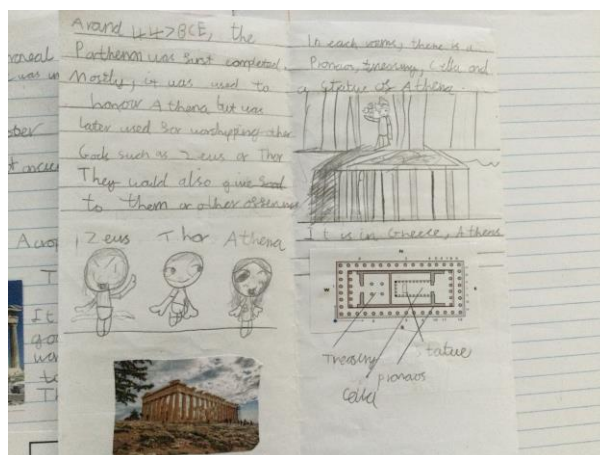 Around 447 BCE, the
Parthenon was first completed.
Mostly, it was used to
honour Athena but was
later used for worshipping other
Gods such as Zeus or Thor
They would also give food
to them or other offerings
Zeus Thor Athena
In each rooms, there is a
Pronaos, treasury, Cella and
a statue of Athena.
It is in Greese, Athens
Treasury
statue
pronaos
Cella
Acrop
It